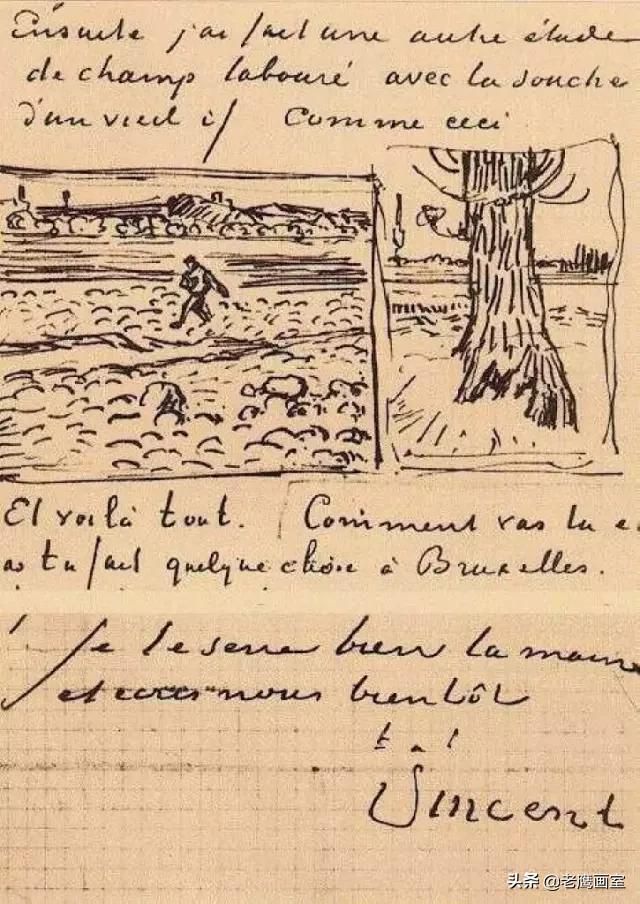 Ensuite j'ai fait une autre étude
de champ labouré avec la souche
d'un vieil if Comme ceci
Et voilà tout. Comment vas tu e
as tu fait quelque chose à Bruxelles.
Je te serre bien la main
et nous bientôt
t. à t.
Vincent
头条 @老鹰画室